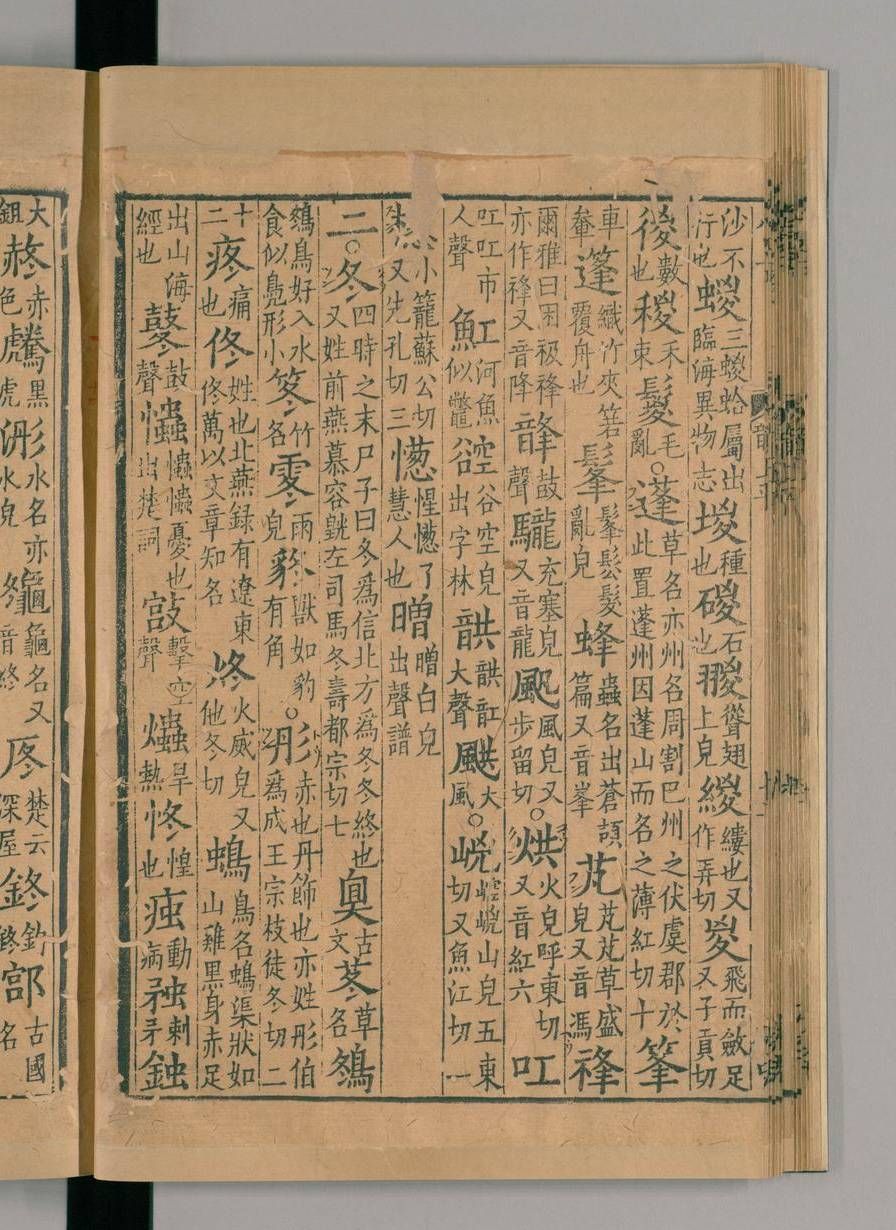 沙不行也 蝬三蝬蛤屬出臨海異物志 堫種也 磫石也 翪聳翅上皃 緵縷也又作弄切 㚇飛而斂足又子貢切
㣭數也 稯禾束 鬉毛亂 ○蓬草名亦州名周割巴州之伏虞郡於此置蓬州因蓬山而名之薄紅切十 䈦
車軬 篷織竹夾箬覆舟也 髼髼鬆髮亂皃 蜂蟲名出蒼頡篇又音峯 芃芃芃草盛皃又音馮 䄫
爾雅曰困衱䄫亦作䄫又音降 韸鼓聲 䮾充塞皃又音龍 風皃又步留切 ○烘火皃呼東切又音紅六 叿
叿叿市人聲 魟河魚似鼈 谾谷空皃出字林 䪦䪦䪧大聲 䫹大風 ○㟅崆㟅山皃五東切又魚江切一
小籠蘇公切又先孔切三 憁惺憁了慧人也 白皃出聲譜
二○冬四時之末尸子曰冬爲信北方爲冬冬終也又姓前燕慕容皝左司馬冬壽都宗切七 古文 苳草名 鴤
鴤鳥好入水食似鳧形小 笗竹名 䨬雨皃 獸如豹有角 ○彤赤也丹飾也亦姓彤伯爲成王宗枝徒冬切二
十 疼痛也 佟姓也北燕録有遼東佟萬以文章知名 炵火威皃又他冬切 鳥名渠狀如山雞黑身赤足
出山海經也 鼕鼓聲 憂也出楚詞 擊空聲 爞旱熱 惶也 痋動病 刺矛
大鉏 赨赤色 黑虎 浵水名亦水皃 龜名又音終 楚云深屋 鉵釣 古國名